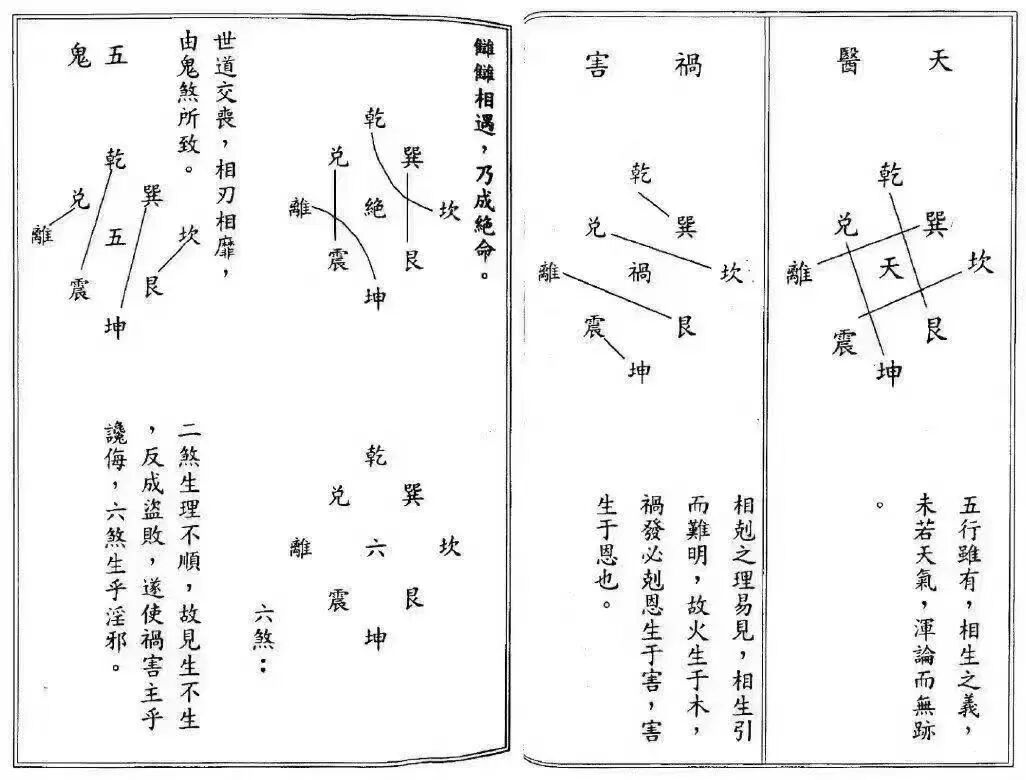 天醫
乾
兌
巽
離
天
坎
震
艮
坤
五行雖有，相生之義，
未若天氣，渾論而無跡
。
禍害
乾
兌
巽
離
禍
坎
震
艮
坤
相剋之理易見，相生引
而難明，故火生于木，
禍發必剋恩生于害，害
生于恩也。
相遇，乃成絕命。
乾
兌
巽
離
絕
坎
震
艮
坤
六煞：
乾
兌
巽
離
六
坎
震
艮
坤
世道交喪，相刃相靡，
由鬼煞所致。
五鬼
乾
兌
巽
離
五
坎
震
艮
坤
二煞生理不順，故見生不生
，反成盜敗，遂使禍害主乎
讒侮，六煞生乎淫邪。